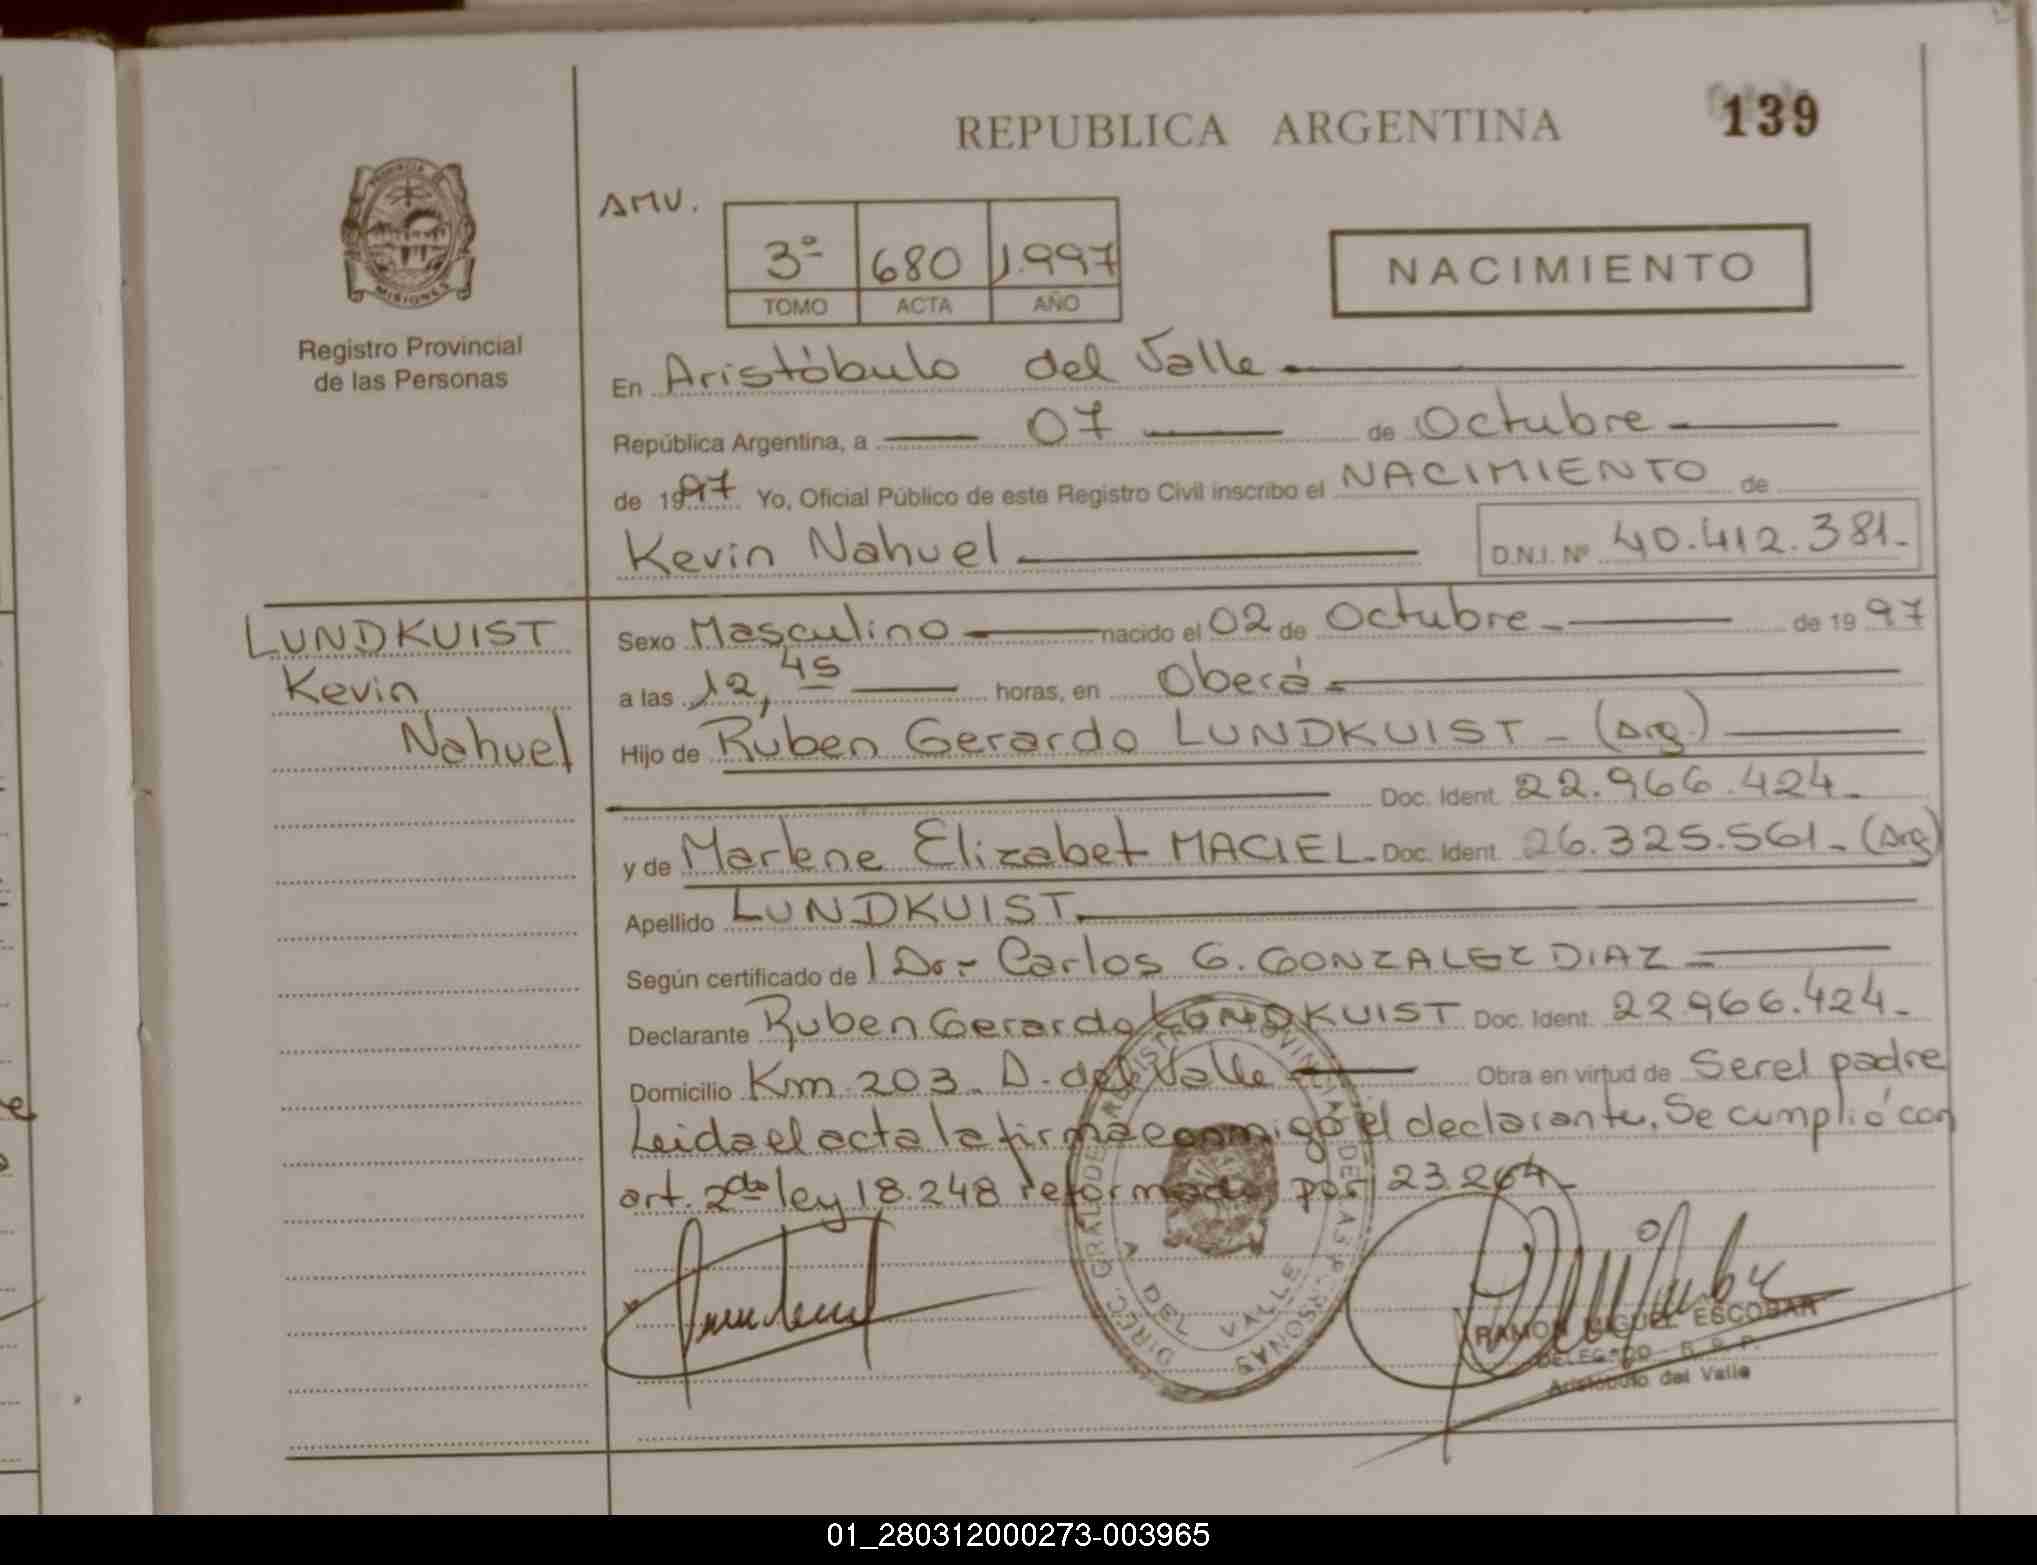 REPUBLICA ARGENTINA
139
PROVINCIA
MISIONES
Registro Provincial
de las Personas
AMV.
3º 680 1.997
TOMO ACTA AÑO
NACIMIENTO
En Aristóbulo del Valle
República Argentina, a 07 de Octubre
de 1997 Yo, Oficial Público de este Registro Civil inscribo el NACIMIENTO de
Kevin Nahuel D.N.I. Nº 40.412.381.-
LUNDKUIST
Kevin
Nahuel
Sexo Masculino nacido el 02 de Octubre de 1997
a las 12,45 horas, en Oberá
Hijo de Ruben Gerardo LUNDKUIST - (Arg.)
Doc. Ident. 22.966.424.-
y de Marlene Elizabet MACIEL.- Doc. Ident. 26.325.561.- (Arg)
Apellido LUNDKUIST.
Según certificado de l Dr.- Carlos G. GONZALEZ DIAZ
Declarante Ruben Gerardo LUNDKUIST Doc. Ident. 22.966.424.-
Domicilio Km. 203. A. del Valle Obra en virtud de Ser el padre
Leida el acta la firma conmigo el declarante. Se cumplió con
art. 2do ley 18.248 reformado por 23.264.-
DIREC. GRAL DE REGISTRO PROVINCIAL DE LAS PERSONAS
A DEL VALLE
RAMON MIGUEL ESCOBAR
DELEGADO R. P. P.
Aristóbulo del Valle
01_280312000273-003965